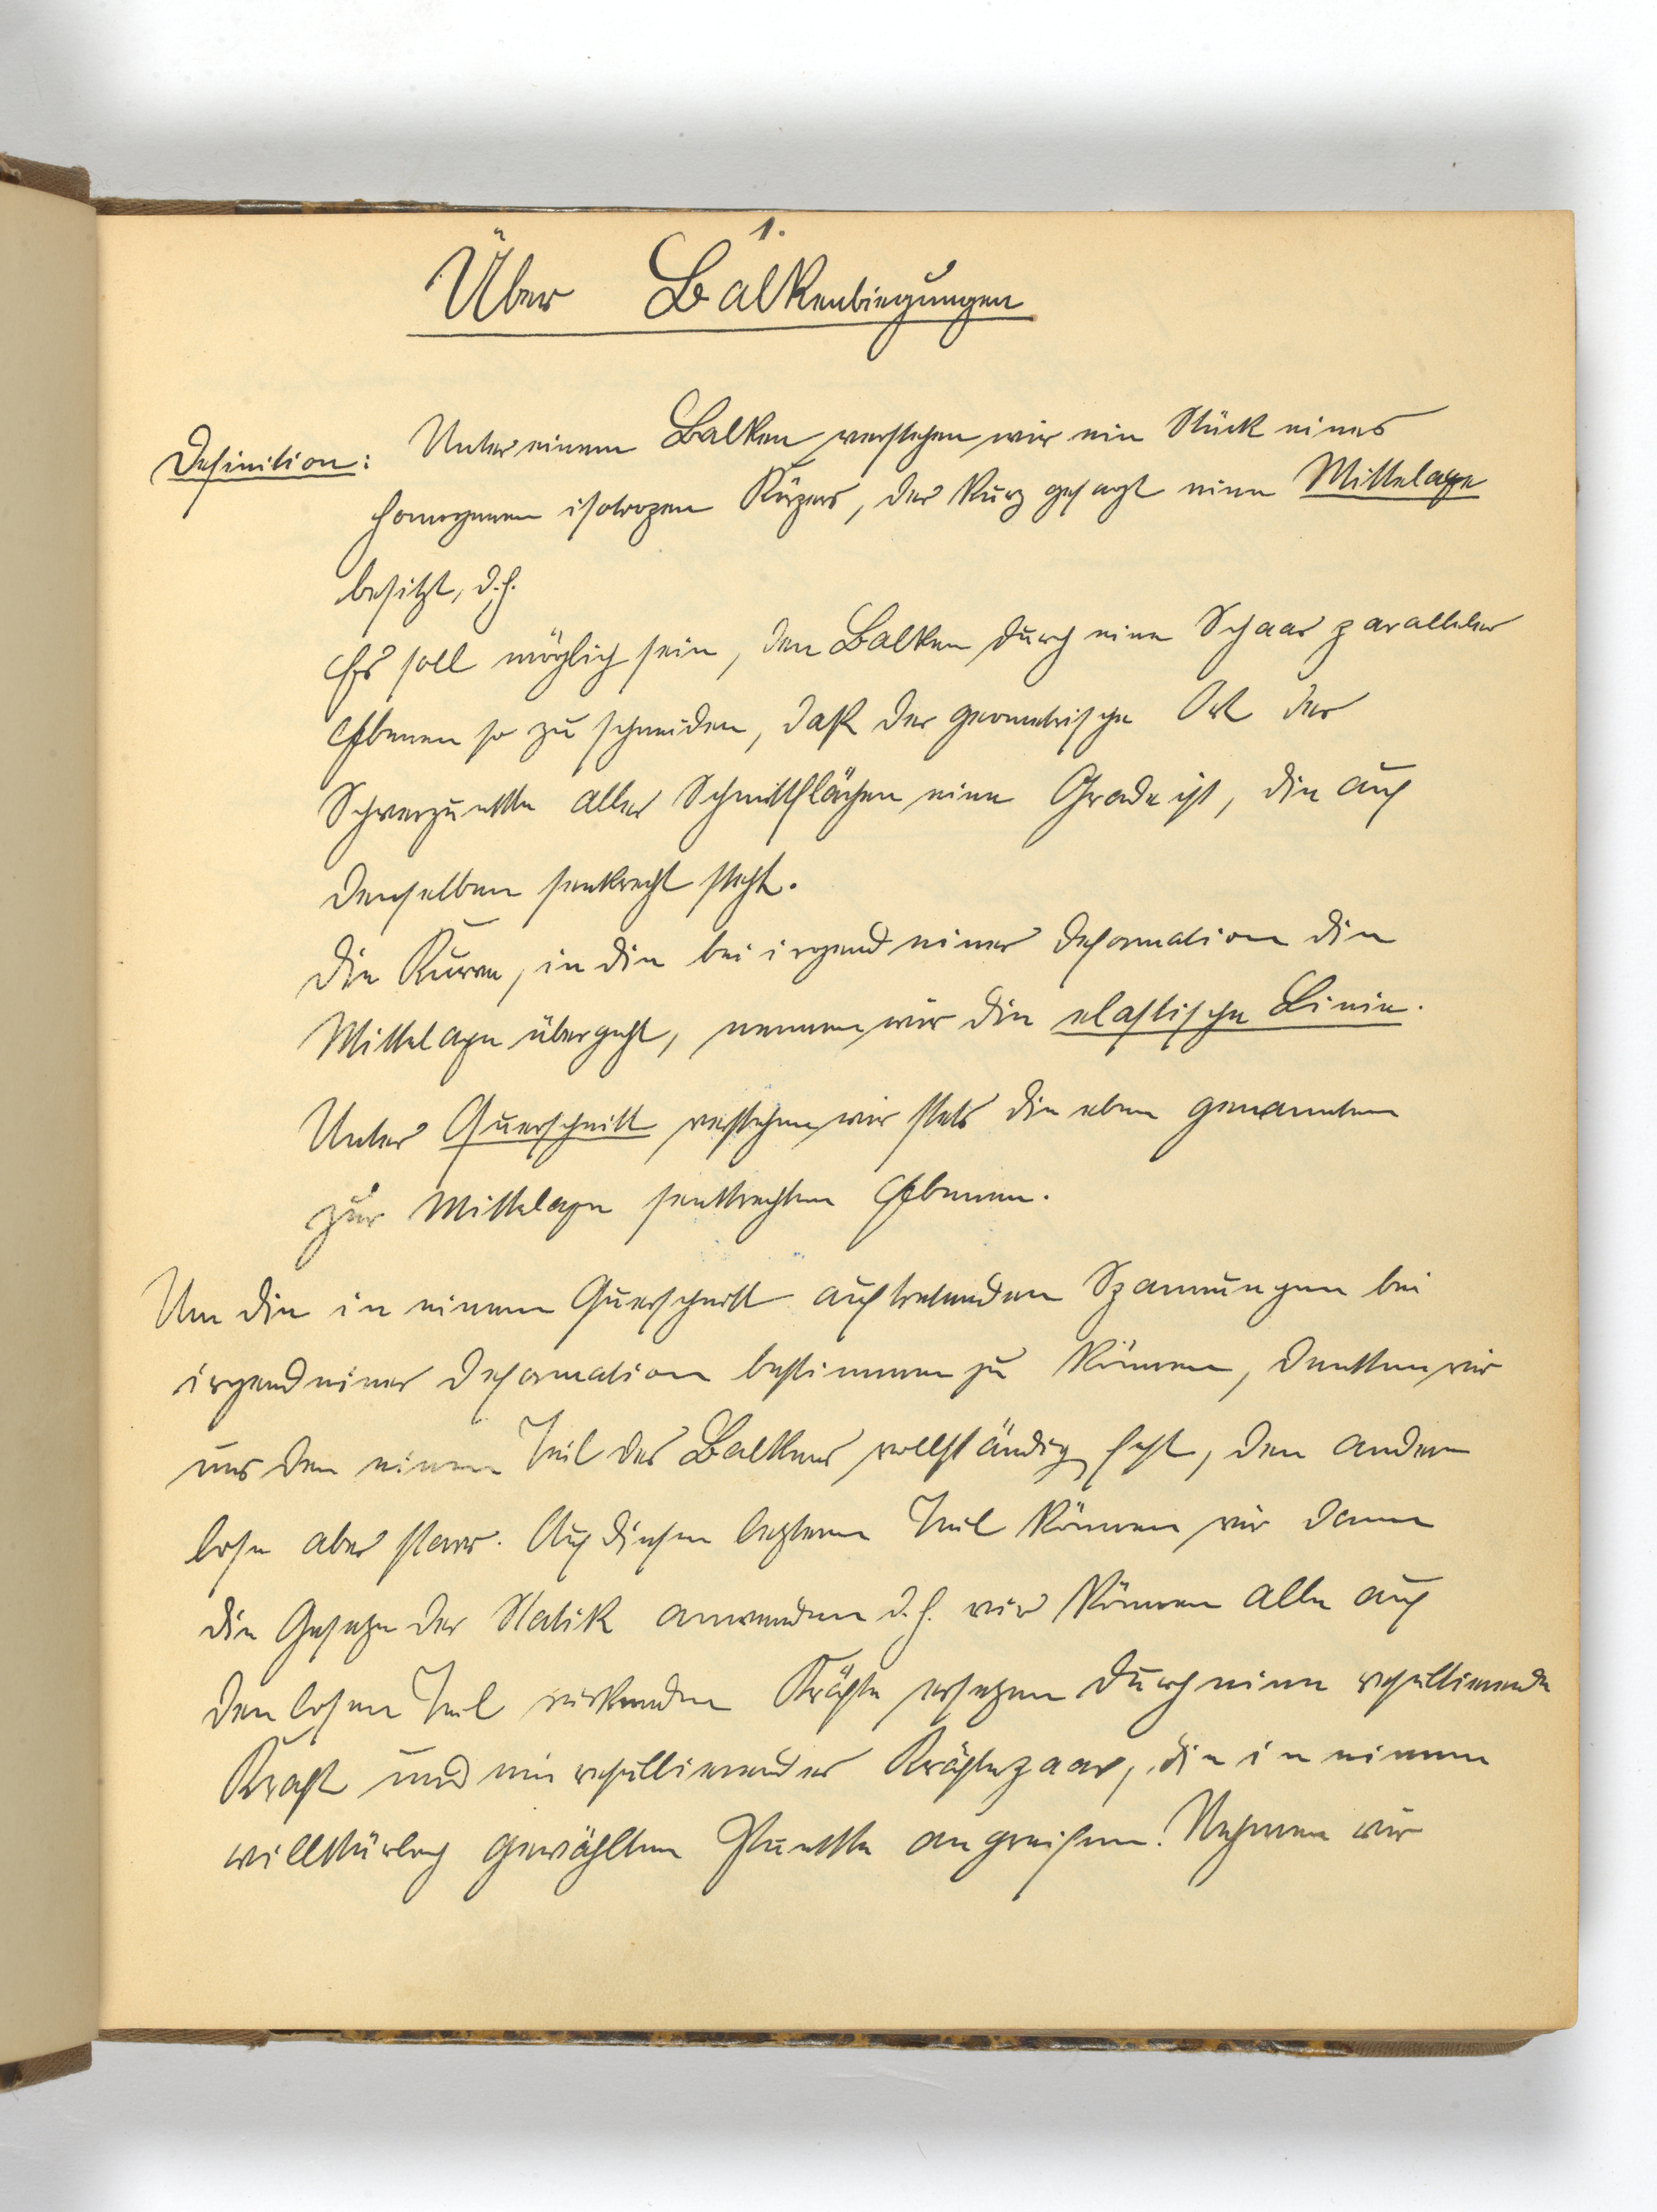 1.
Über Balkenbiegungen
Definition: Unter einem Balken verstehen wir ein Stück eines
homogenen isotropen Körpers, der kurz gesagt eine Mittelaxe
besitzt, d.h.
Es soll möglich sein, den Balken durch eine Schaar paralleler
Ebenen so zu schneiden, daß der geometrische Ort der
Schwerpunkte aller Schnittflächen eine Grade ist, die auf
denselben senkrecht steht.
Die Kurve, in die bei irgend einer Deformation die
Mittelaxe übergeht, nennen wir die elastische Linie.
Unter Querschnitt verstehen wir stets die eben genannten
zur Mittelaxe senkrechten Ebenen.
Um die in einem Querschnitt auftretenden Spannungen bei
irgend einer Deformation bestimmen zu können, denken wir
uns den einen Teil des Balkens vollständig fest, den andern
lose aber starr. Auf diesen letztern Teil können wir dann
die Gesetze der Statik anwenden d.h. wir können alle auf
den losen Teil wirkenden Kräfte ersetzen durch eine resultierende
Kraft und ein resultierendes Kräftepaar, die in einem
willkürlich gewählten Punkte angreifen. Nehmen wir